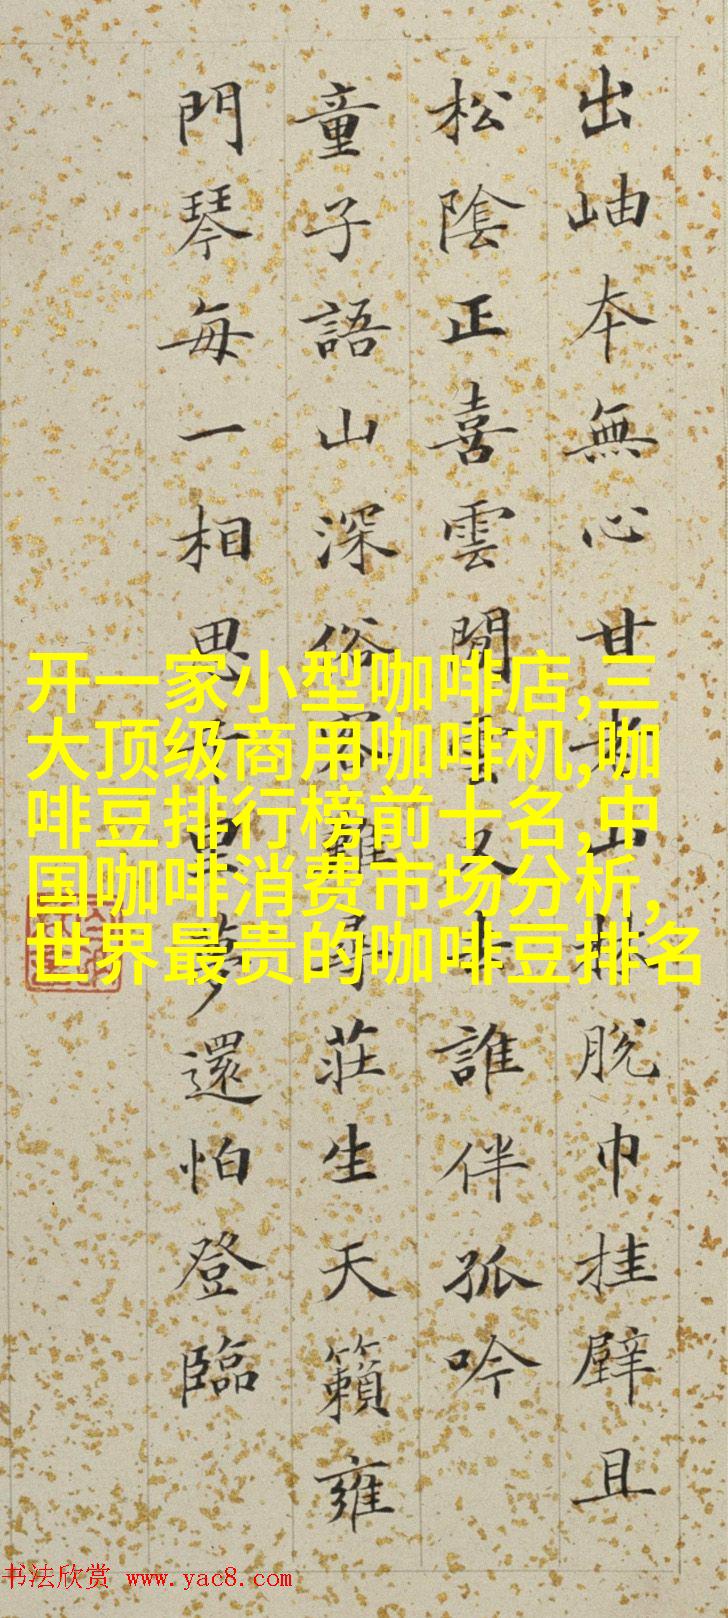 出岫本無心甘老山林脫巾挂壁且
松陰正喜雲閒雲又去誰伴孤吟
童子語山深俗客難尋莊生天籟雍
門琴每一相思千里夢還怕登臨
开一家小型咖啡店,三
大顶级商用咖啡机,咖
啡豆排行榜前十名,中
国咖啡消费市场分析,
世界最贵的咖啡豆排名
书法欣赏 www.yac8.com